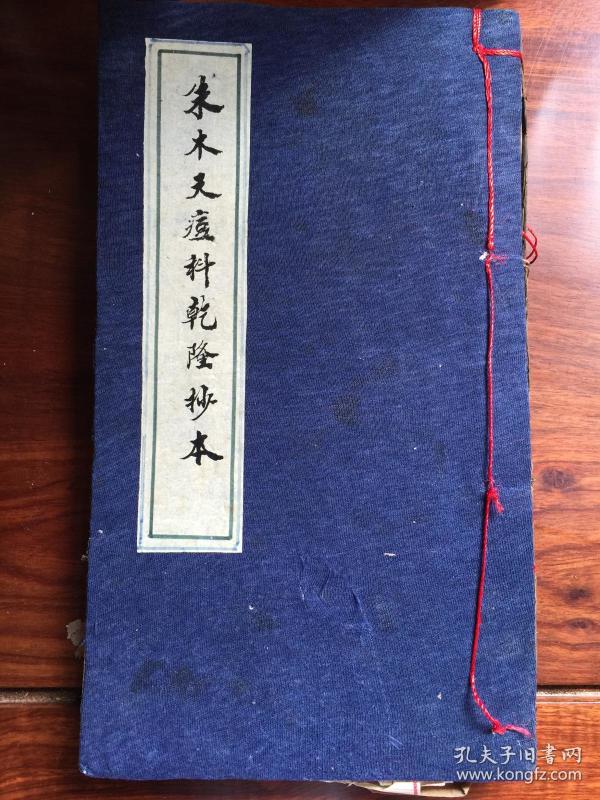 朱木天痘科乾隆抄本
孔夫子旧书网
www.kongfz.com